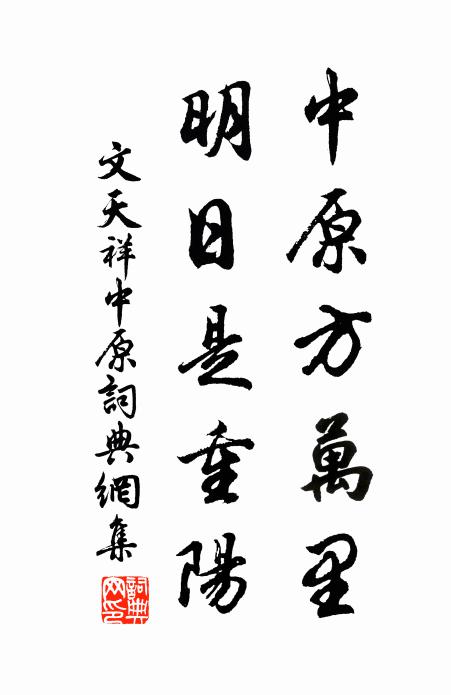 中原方萬里
明日是重陽
文天祥中原詞典網集
詞典
网印